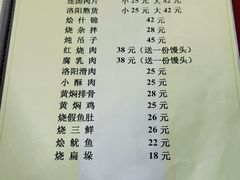 连汤肉片 小25元 大42元
洛阳熬货 小25元 大42元
烩什锦 42元
烧杂拌 28元
炖吊子 45元
红烧肉 38元(送一份馒头)
腐乳肉 38元(送一份馒头)
洛阳滑肉 25元
小酥肉 25元
黄焖排骨 28元
黄焖鸡 25元
烧假鱼肚 26元
烧三鲜 26元
烩鱿鱼 22元
烧扁垛 18元